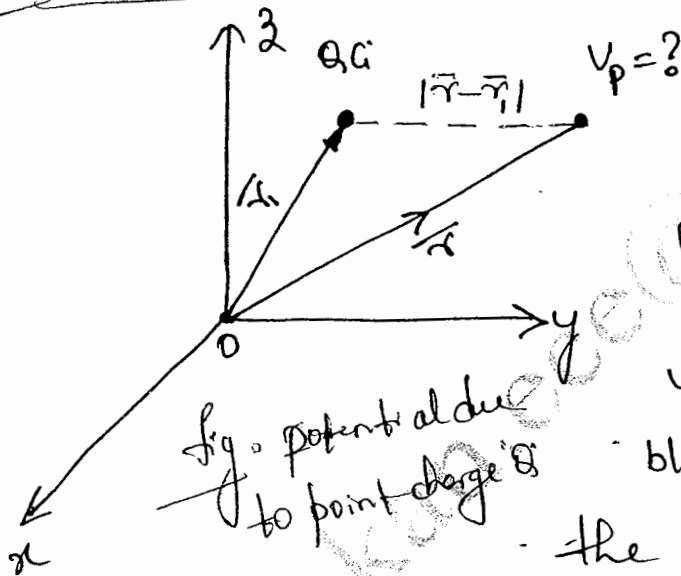 z
Q, C
V_p = ?
|r̄ - r̄₁|
r̄₁
r̄
0
y
x
fig: potential due
to point charge 'Q'
bl
the